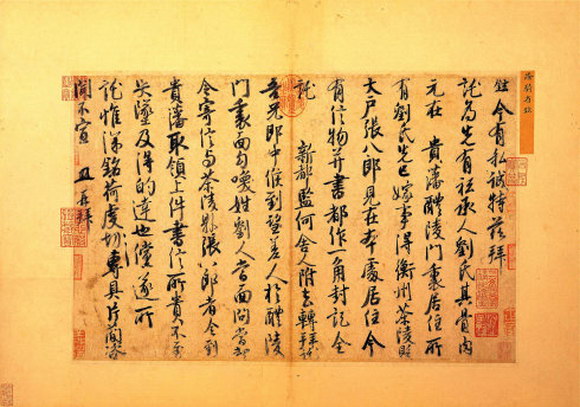 今有私誠特茲拜
託為先有祗承人劉氏其骨肉
元在 貴藩醴陵門裏居住所
有劉氏先已嫁事得衡州茶陵縣
大戶張八郎見在本處居住今
有信物并書都作一角封記全
託 新都監何舍人附去轉拜託
吾兄郎中候到望差人於醴陵
門裏面勾喚姓劉人當面問當却
令寄信与茶陵縣張郎者令到
貴藩取領上件書信所貴不至
失墜及得的達也儻遂所
託惟深銘荷虔切專具片簡咨
聞不宣 再拜